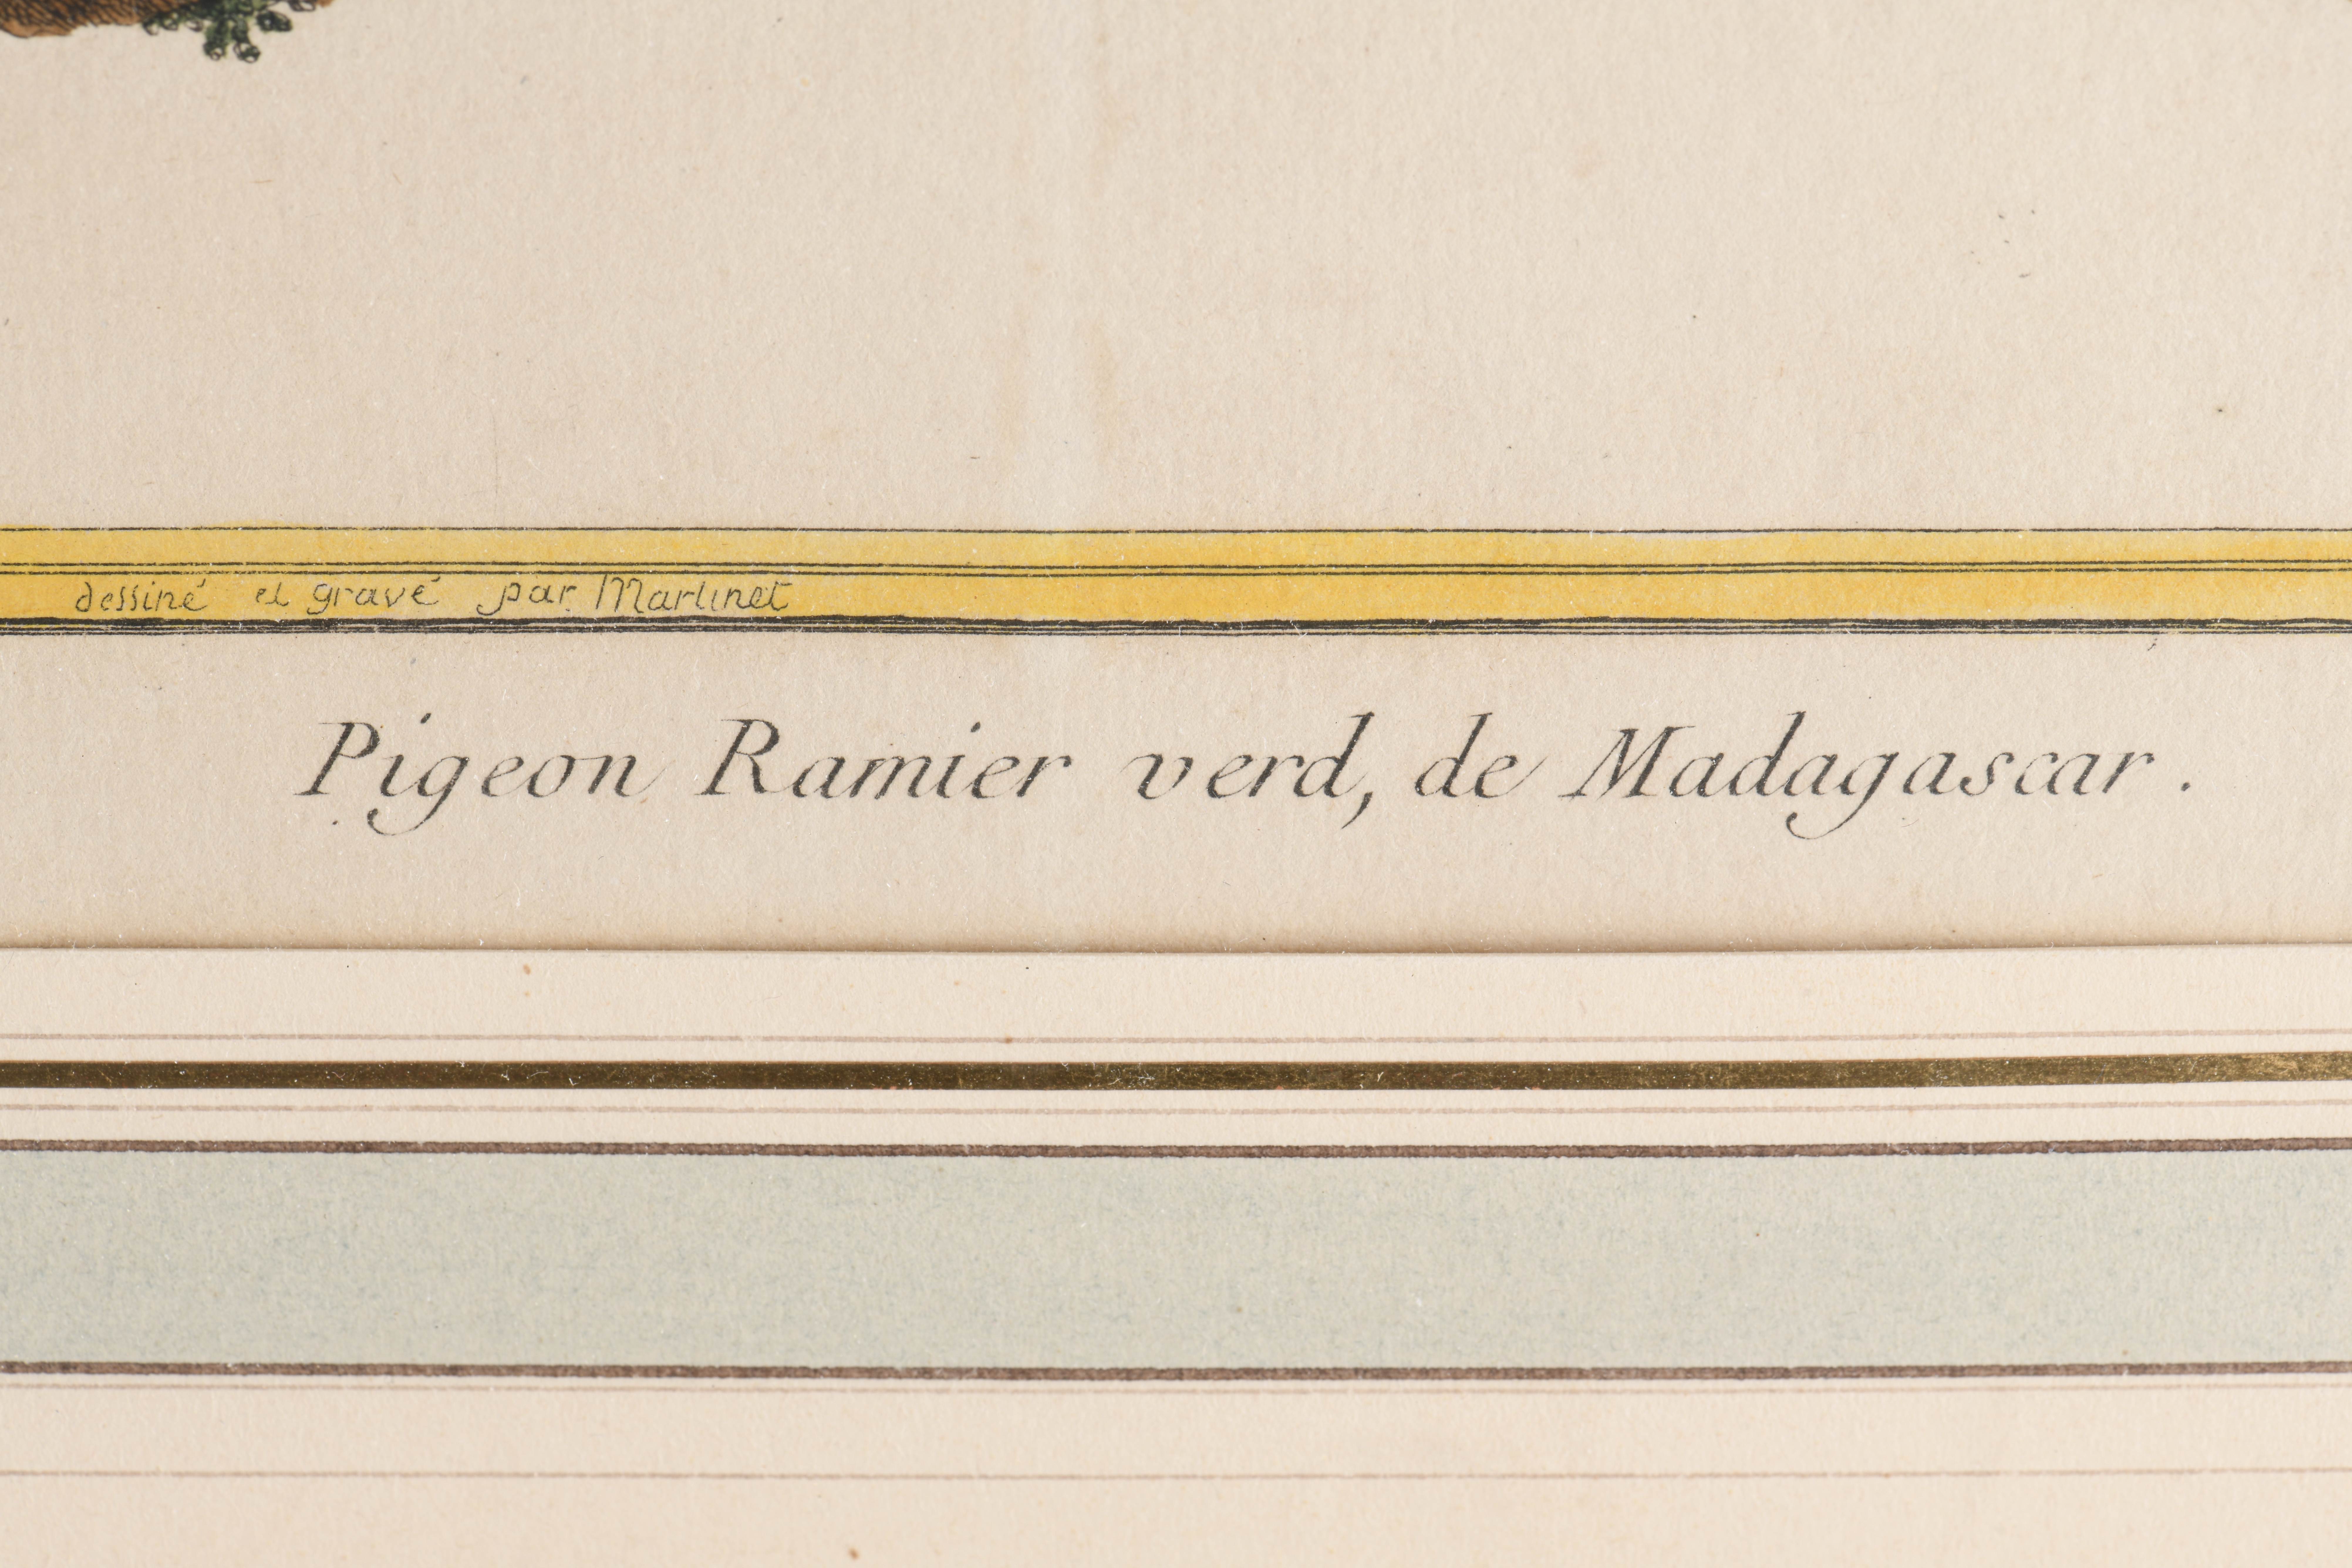 dessiné et gravé par Martinet
Pigeon Ramier verd, de Madagascar.